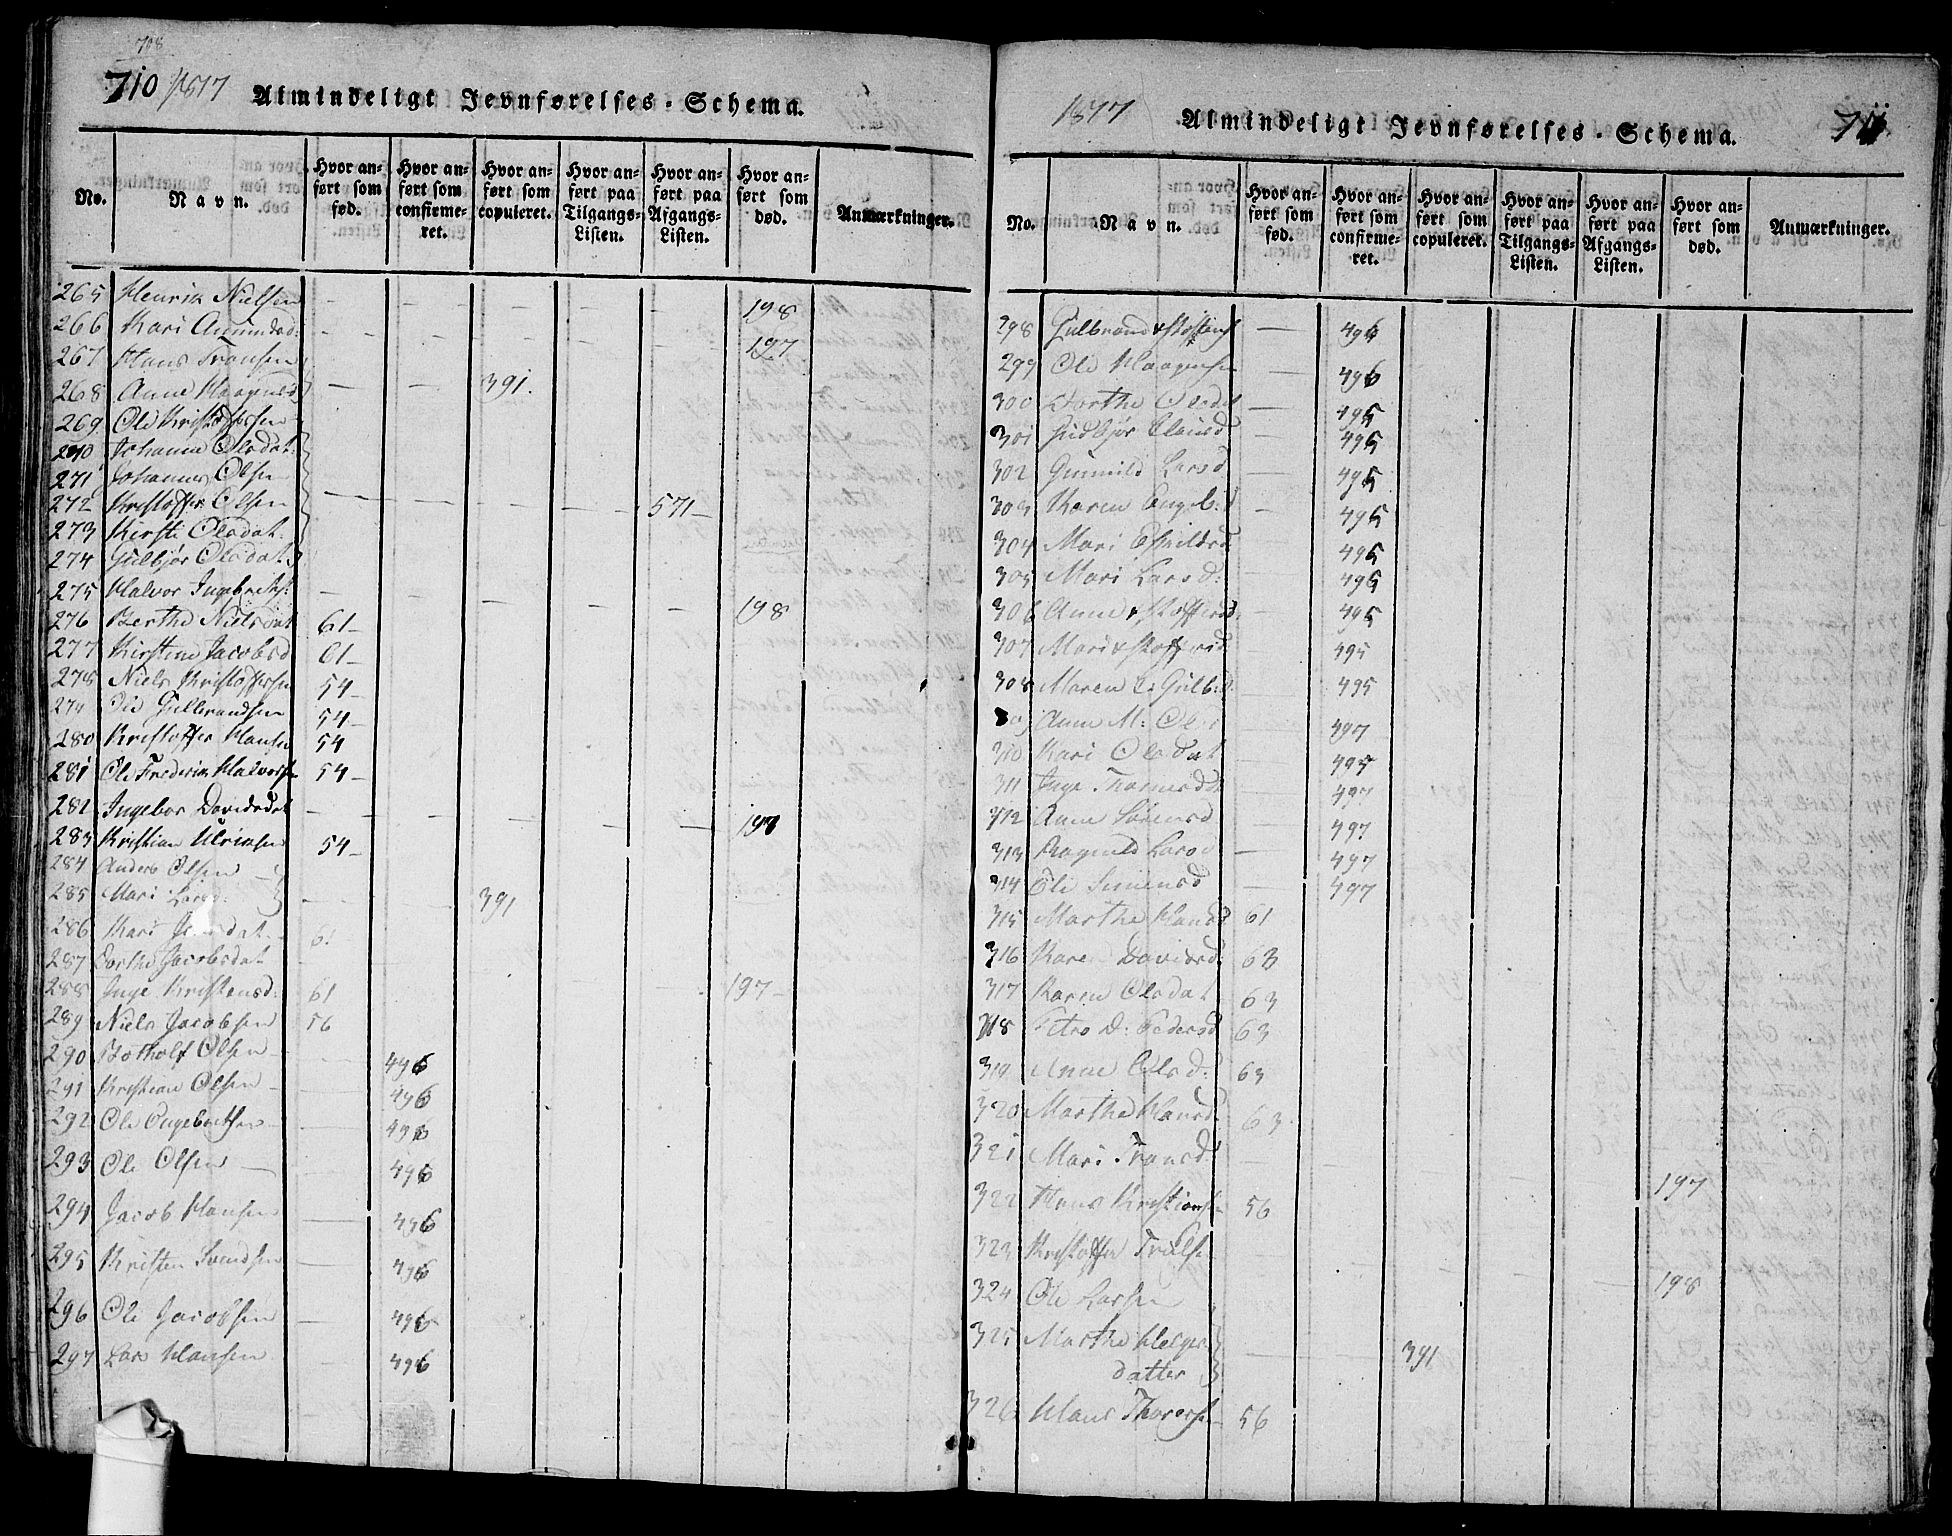 708
710 1817 Almindeligt Jevnførelses-Schema.
No. Navn. Hvor anført som fød. Hvor anført som confirmeret. Hvor anført som copuleret. Hvor anført paa Tilgangs-Listen. Hvor anført paa Afgangs-Listen. Hvor anført som død. Anmærkninger.
265 Henrik Nielsen — 198
266 Kari Amundsd: — 197
267 Hans Fransen
268 Anne Haagensd — 391.
269 Ole Kristoffersen
270 Johanne Olsdat:
271 Johannes Olsen
272 Kristoffer Olsen — 571 —
273 Kirsti Olsdat:
274 Gulbjør Olsdat
275 Halvor Ingebrets: — 198
276 Berthe Nielsdat 61 —
277 Kirstine Jacobsd 61 —
278 Niels Kristoffersen 54 —
279 Ole Gulbrandsen 54 —
280 Kristoffer Hansen 54
281 Ole Frederik Halvorsen 54 —
282 Ingebor Davidsdat — 197
283 Kristian Ulriksen 54 —
284 Anders Olsen
285 Mari Larsd: — 391
286 Kari dat. 61
287 Dorthe Jacobsdat
288 Inge Kristensd: 61 — 197 —
289 Niels Jacobsen 56
290 Botholf Olsen — 496
291 Kristian Olsen — 496
292 Ole Engebretsen — 496
293 Ole Olsen — 496
294 Jacob Hansen — 496
295 Kristen Svendsen — 496
296 Ole Jacobsen — 496
297 Lars Hansen 496
1817 Almindeligt Jevnførelses-Schema. 711
No. Navn. Hvor anført som fød. Hvor anført som confirmeret. Hvor anført som copuleret. Hvor anført paa Tilgangs-Listen. Hvor anført paa Afgangs-Listen. Hvor anført som død. Anmærkninger.
298 Gulbrand — 496
299 Ole Haagensen 496
300 Dorthe Olsdat — 495
301 Gudbjør — 495
302 Gunnild Larsd — 495
303 Karen Engeb: 495
304 Mari 495
305 Mari Larsd: — 495
306 Anne — 495
307 Mari 495
308 Maren — 495
309 Anne M: 497
310 Kari Olsdat 495
311 Inge Thomesdat 497
312 Anne Sørensd 497
313 Ragnild Larsd — 497
314 Ole Simensd — 497
315 Marthe Hansd 61
316 Karen Davidsd: 63
317 Karen Olsdat 63
318 Pedersd 63
319 Anne Olsd: 63
320 Marthe Hansd: 63
321 Mari Fransd — 197
322 Hans Kristians 56
323 Kristoffer Trulse — 198
324 Ole Larsen
325 Marthe Helges
datter — 391
326 Hans Thorersen 56